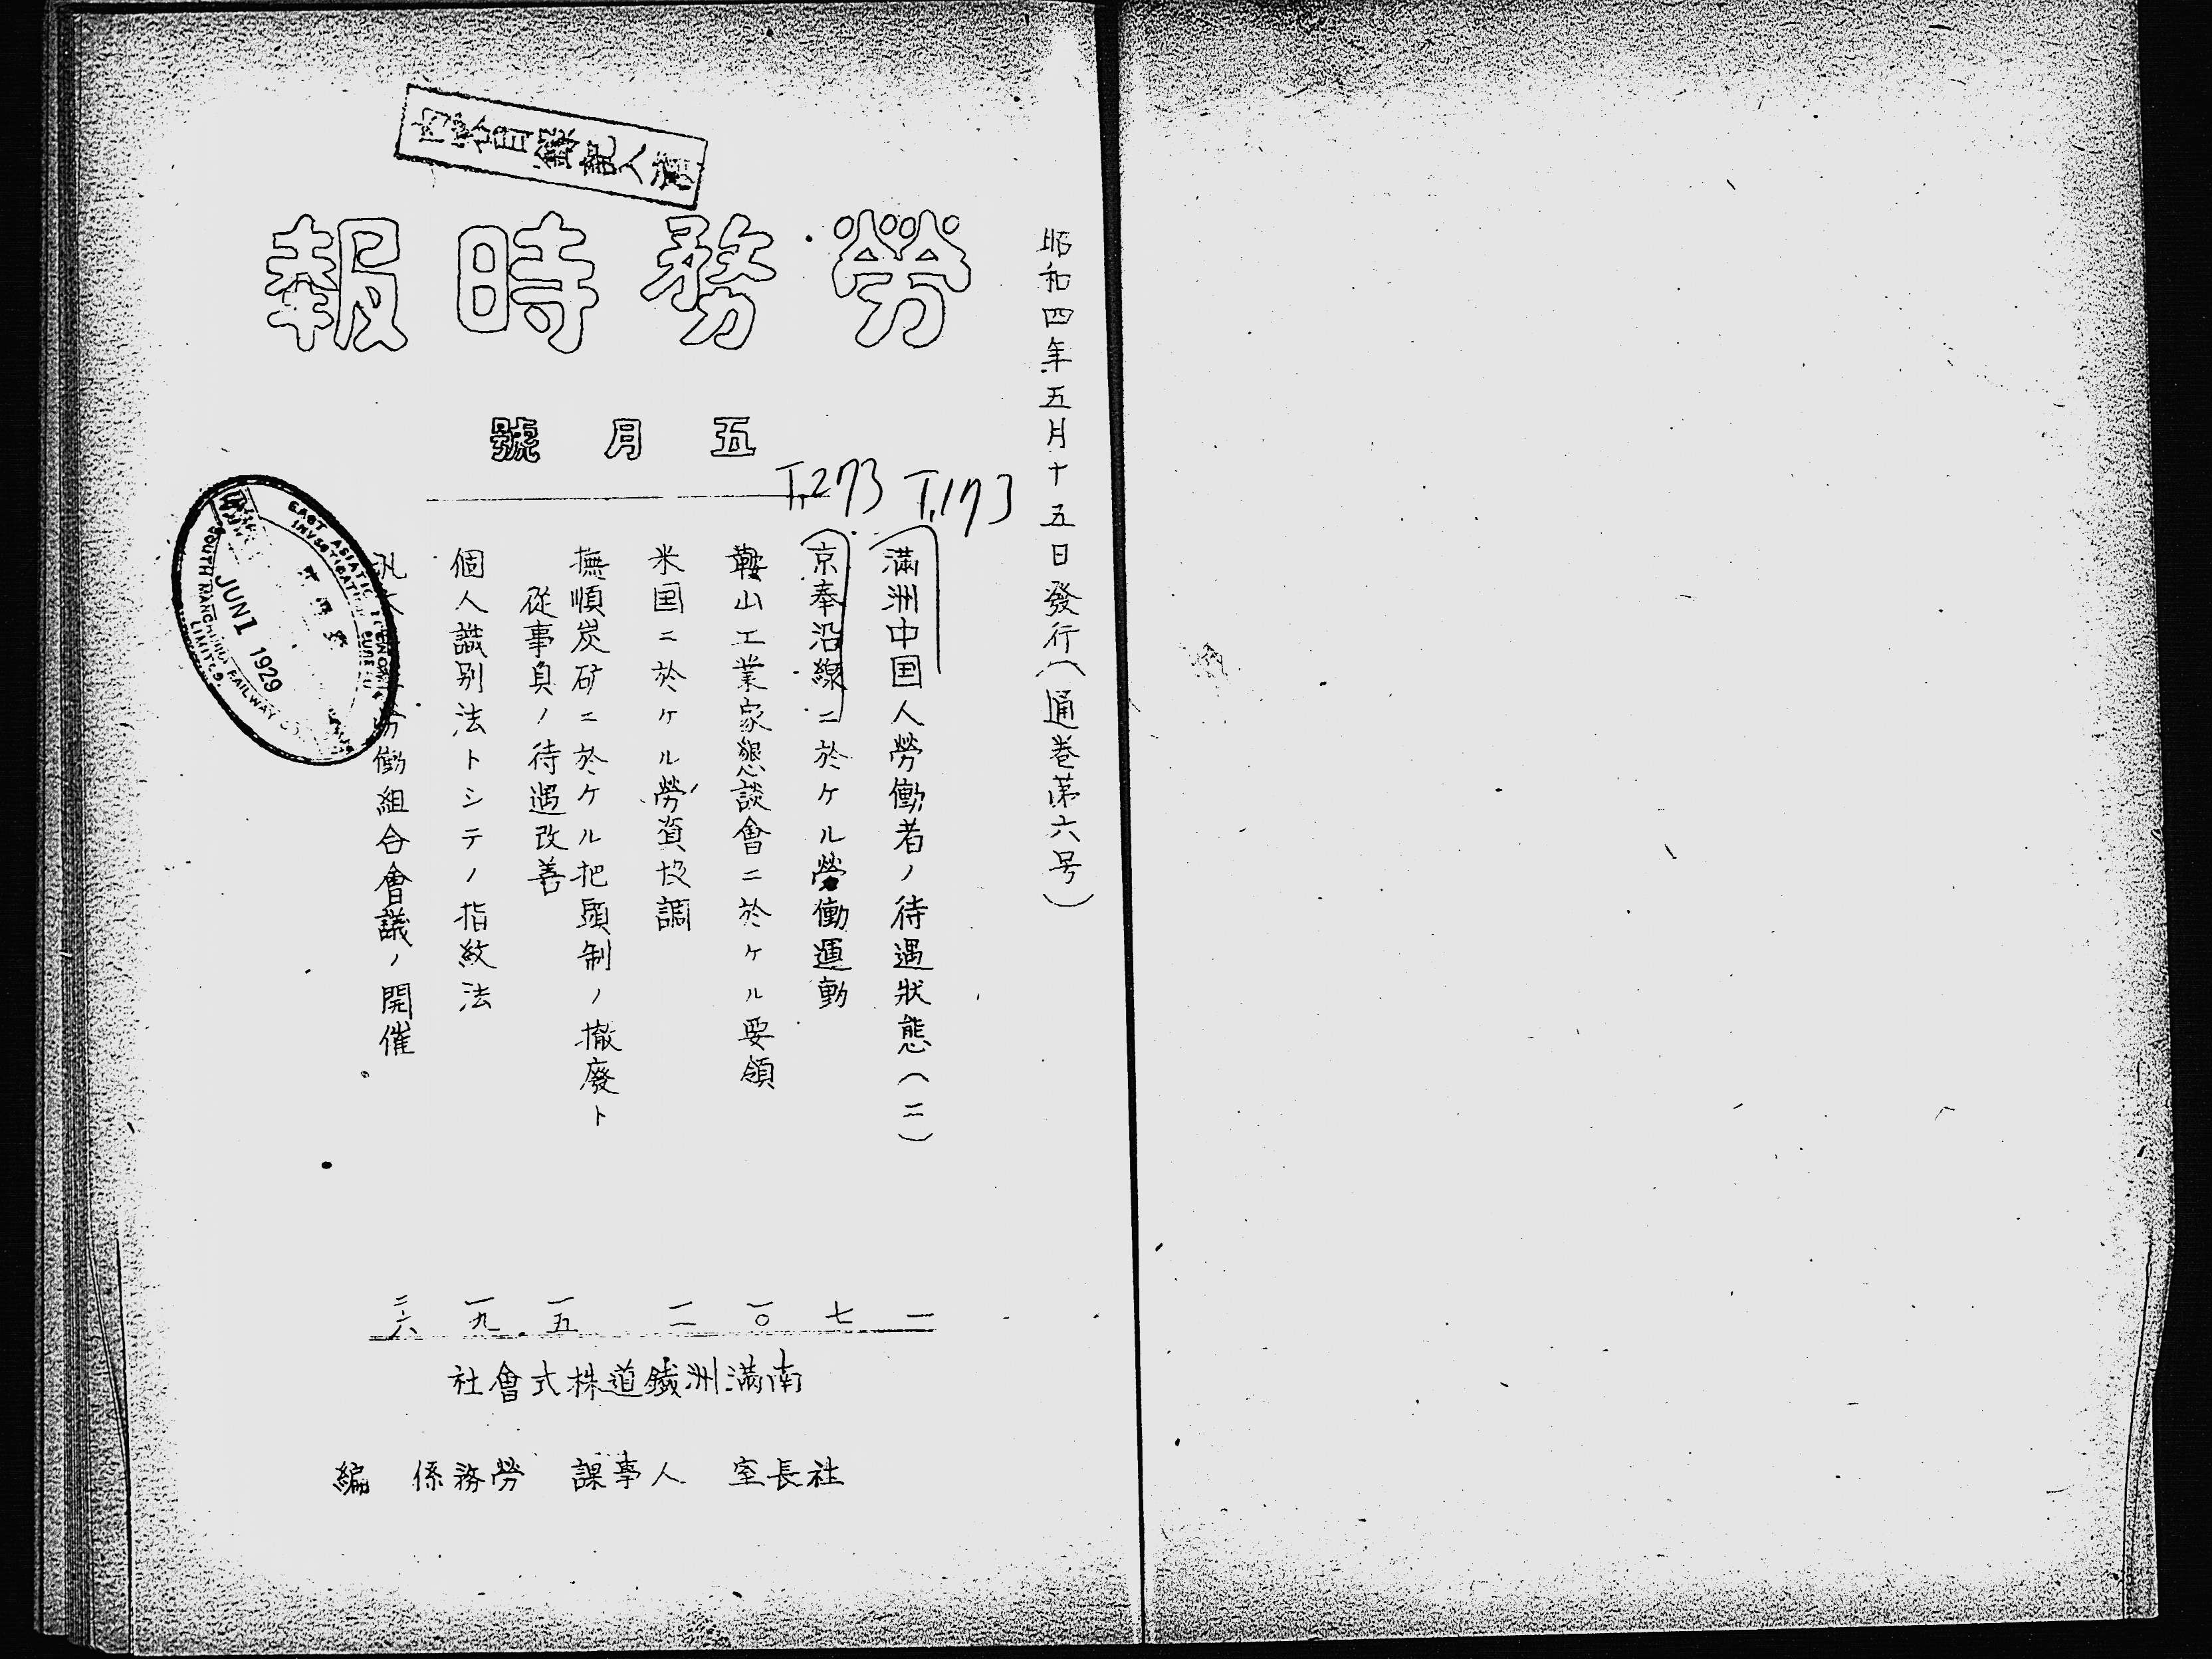 昭和四年五月十五日發行(通巻第六号)
内容目錄記入濟
勞務時報
五月號
T,273 T,173
滿洲中国人勞働者ノ待遇狀態(二) 一
京奉沿線ニ於ケル勞働運動 七
鞍山工業家懇談會ニ於ケル要領 一〇
米国ニ於ケル勞資協調 一一
撫順炭矿ニ於ケル把頭制ノ撤廢ト
從事員ノ待遇改善 一五
個人識別法トシテノ指紋法 一九
汎 勞働組合會議ノ開催 二六
EAST ASIATIC ECONOMIC
INVESTIGATION BUREAU
JUN 1 1929
SOUTH MANCHURIA RAILWAY CO.
LIMITED.
南滿洲鐵道株式會社
社長室 人事課 勞務係 編